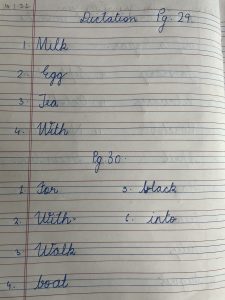 Dictation Pg. 29.
1. Milk
2. Egg
3. Tea
4. With
Pg 30.
1. For 5. black
2. With. 6. into
3. Walk
4. boat